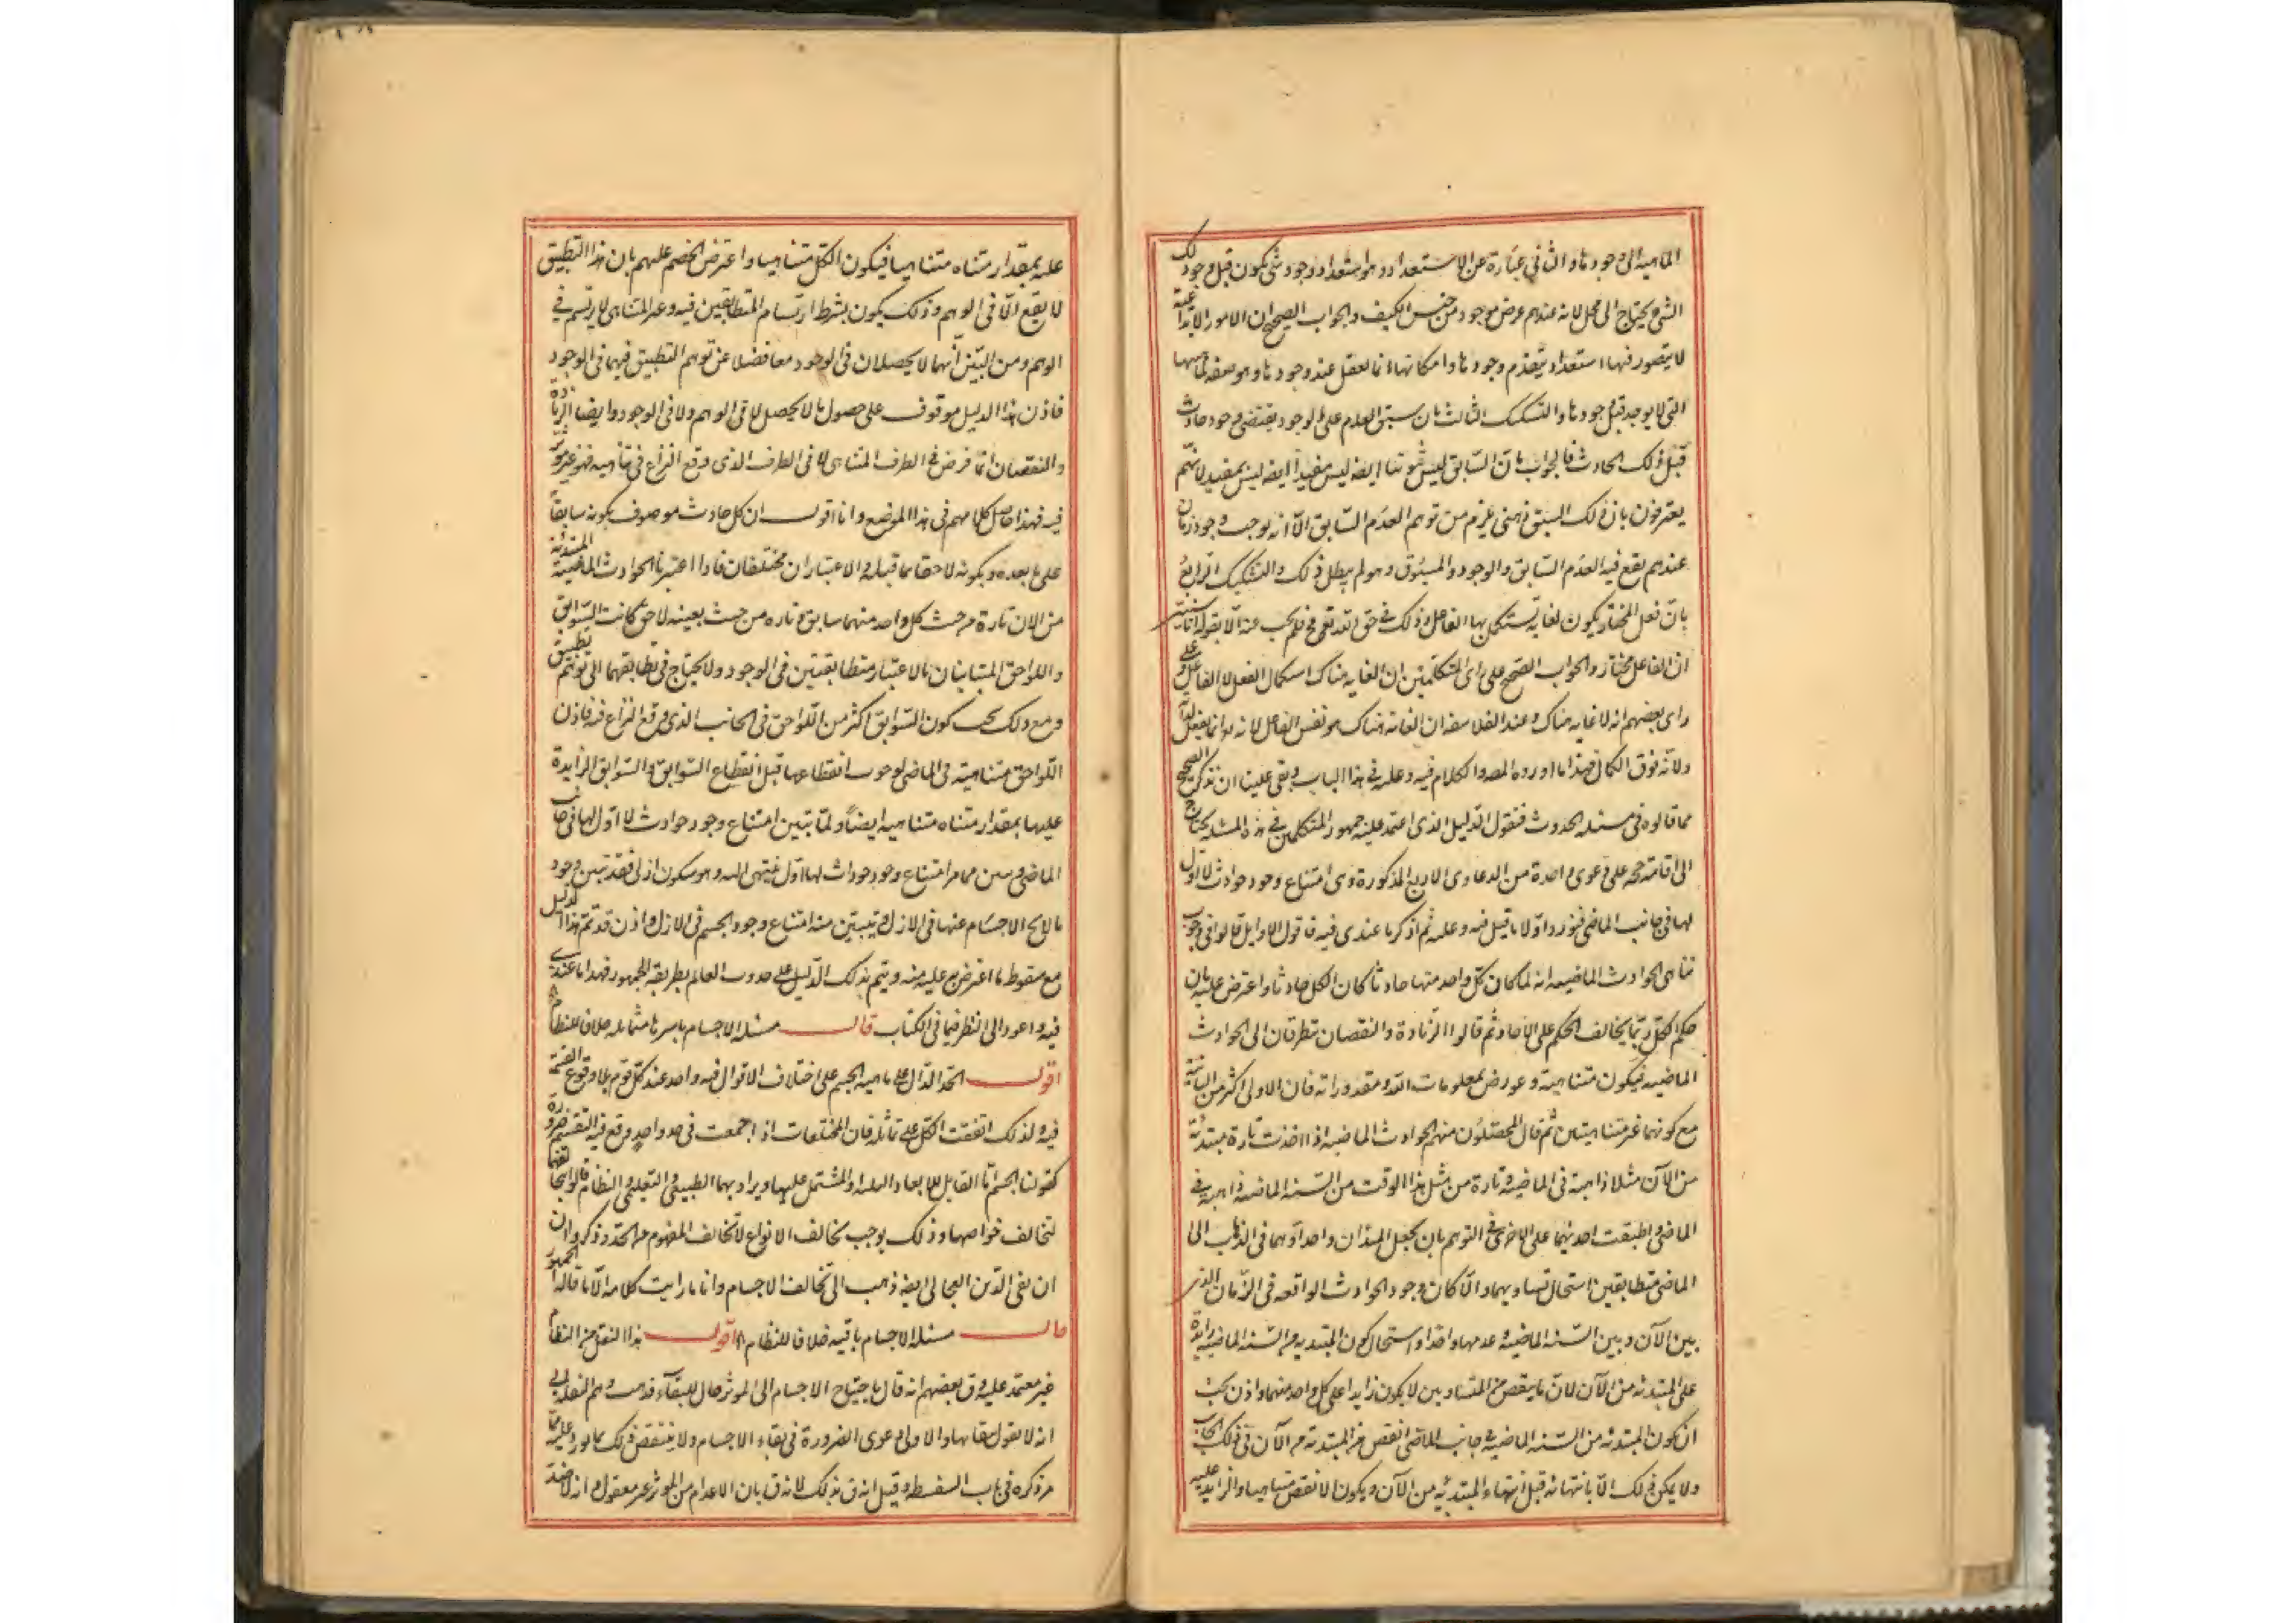 الماهية الى وجودها والثانى عبارة عن الاستعداد وهو استعداد وجود شئ يكون قبل وجود ذلك
الشئ يحتاج الى محل لانه عندهم عرض موجود من جنس الكيف والجواب الصحيح ان الامور الابداعية
لا يتصور فيها استعداد يتقدم وجودها وامكانها انما يعقل عند وجودها وهو صفة لماهيتها
التى لا يوجد قبل وجودها والتشكيك الثالث بان سبق العدم على الوجود يقتضى وجود حادث
قبل ذلك الحادث فالجواب بان السابق ليس ثبوتيا ايضه ليس مفيدا ايضه ليس بمفيد لانهم
يعترفون بان ذلك السبق ذهنى يلزم من توهم العدم السابق الا انه يوجب وجود زمان
عندهم يقع فيه العدم السابق والوجود والمسبوق وهو لم يبطل ذلك والتشكيك الرابع
بان فعل المختار يكون لغاية يستكمل بها الفاعل وذلك فى حق الله تعالى مح فلم يجب عنه الا بقوله انا سنبين
ان الفاعل مختار والجواب الصحيح على راى المتكلمين ان الغايه هناك استكمال الفعل لا الفاعل وعلى
راى بعضهم انه لا غايه هناك وعند الفلاسفه ان الغاية هناك هو نفس الفاعل لانه انما يفعل لذاته
ولانه فوق الكمال فهذا ما اورده المصه والكلام فيه وعليه فى هذا الباب وبقى علينا ان نذكر الصحيح
مما قالوه فى مسئله الحدوث فنقول الدليل الذى اعتمد عليه جمهور المتكلمين فى هذه المسئله يحتاج
الى اقامة حجه على دعوى واحدة من الدعاوى الاربع المذكورة وهى امتناع وجود حوادث لا اول
لها فى جانب الماضى فنورد اولا ما قيل فيه وعليه ثم اذكر ما عندى فيه فاقول الاوايل قالوا فى وجوب
تناهى الحوادث الماضيه انه لما كان كل واحد منها حادثا كان الكل حادثا واعترض عليه بان
حكم الكل ربما يخالف الحكم على الاحاد ثم قالوا الزيادة والنقصان يتطرقان الى الحوادث
الماضيه فيكون متناهية وعورض بمعلومات الله ومقدوراته فان الاولى اكثر من الثانية
مع كونهما غير متناهيتين ثم قال المحصلون منهم الحوادث الماضيه اذا اخذت تارة مبتدئة
من الآن مثلا ذاهبة فى الماضى وتارة من مثل هذا الوقت من السنه الماضيه ذاهبة فى
الماضى واطبقت احديهما على الاخرى فى التوهم بان يجعل المبدان واحدا وهما فى الذهاب الى
الماضى متطابقين استحال تساويهما والا كان وجود الحوادث الواقعه فى الزمان الذى
بين الآن وبين السنه الماضيه وعدمها واحدا واستحال كون المبتديه من السنه الماضيه زايدة
على المبتدئه من الآن لان ما ينقص من المتساويين لا يكون زايدا على كل واحد منهما واذن يجب
ان يكون المبتدئه من السنه الماضيه فى جانب الماضى انقص من المبتدئة من الآن فى ذلك الجانب
ولا يمكن ذلك الا بانتهائه قبل انتهاء المبتدئيه من الآن ويكون الانقص متناهيا والزايد عليه
عليه بمقدار متناه متناهيا فيكون الكل متناهيا واعترض الخصم عليهم بان هذا التطبيق
لا يقع الا فى الوهم وذلك يكون بشرط ارتسام المتطابقين فيه وغير المتناهى لا يرتسم فى
الوهم ومن البين انهما لا يحصلان فى الوجود معا فضلا عن توهم التطبيق فيهما فى الوجود
فاذن هذا الدليل موقوف على حصول ما لا يحصل لا فى الوهم ولا فى الوجود وايضا الزيادة
والنقصان انما فرض فى الطرف المتناهى لا فى الطرف الذى وقع النزاع فى تناهيه فهو غير مؤثر
فيه فهذا حاصل كلامهم فى هذا الموضع وانا اقول ان كل حادث موصوف بكونه سابقا
على ما بعده وبكونه لاحقا بما قبله والاعتباران مختلفان فاذا اعتبرنا الحوادث الماضية المبتدئة
من الان تارة من حيث كل واحد منهما سابق وتاره من حيث بعينه لاحق كانت السوابق
واللواحق المتباينان بالاعتبار متطابقتين فى الوجود ولا يحتاج فى تطابقهما الى توهم تطبيق
ومع ذلك يجب كون السوابق اكثر من اللواحق فى الجانب الذى وقع النزاع فيه فاذن
اللواحق متناهية فى الماضى لوجوب انقطاعها قبل انقطاع السوابق والسوابق الزايدة
عليها بمقدار متناه متناهيه ايضا ولما تبين امتناع وجود حوادث لا اول لها فى جانب
الماضى وتبين مما مر امتناع وجود حوادث لها اول ينتهى اليه وهو سكون ازلى فقد تبين وجود
ما لا يخ الاجسام عنها فى الازل وتبين منه امتناع وجود الجسم فى الازل واذن قد تم هذا الدليل
مع سقوط ما اعترض به عليه منه ويتم بذلك الدليل على حدوث العالم بطريقه الجمهور فهذا ما عندى
فيه واعود الى النظر فيما فى الكتاب قال مسئله الاجسام باسرها متماثله خلافا للنظام
اقول الحد الدال على ماهيه الجسم على اختلاف الاقوال فيه واحد عند كل قوم بلا وقوع القسمة
فيه لذلك اتفقت الكل على تماثله فان المختلفات اذا جمعت فى حد واحد وقع فيه التقسيم ضرورة
كقولنا الجسم اما القابل للابعاد الثلثة او المشتمل عليها ويراد بهما الطبيعى والتعليمى والنظام قال بتخالفها
لتخالف خواصها وذلك يوجب تخالف الانواع لا تخالف المفهوم من الحد وذكروا ان
ان تقى الدين العجالى ايضه ذهب الى تخالف الاجسام وانا ما رايت كلامه الا ما قاله الجمهور
قال مسئله الاجسام باقيه خلافا للنظام اقول هذا النقل من النظام
غير معتمد عليه وق بعضهم انه قال باحتياج الاجسام الى الموثر حال البقآء فذهب وهم النقله الى
انه لا يقول ببقائها والاولى دعوى الضرورة فى بقاء الاجسام ولا ينتقض ذلك بما يورد عليه مما
مر ذكره فى باب السفسطه وقيل انه ق بذلك لانه ق بان الاعدام من الموثر غير معقول وانه لا ضد